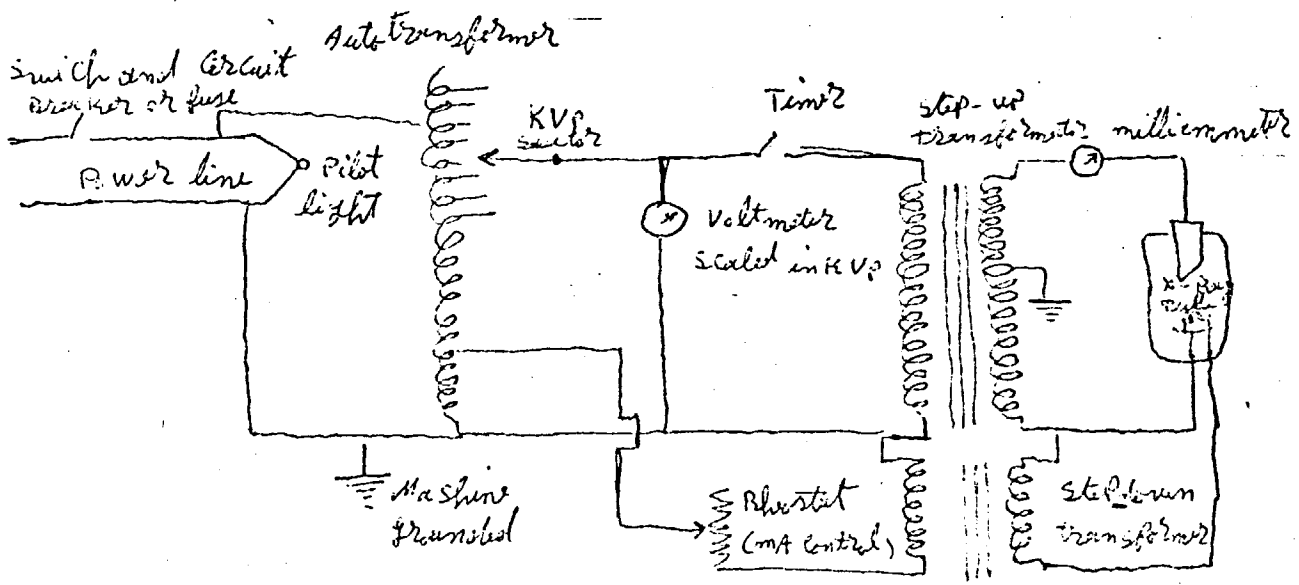 Autotransformer
Switch and Circuit
Breaker or fuse
Power line
Pilot
light
KVP
Timer
Step-up
milliammeter
Voltmeter
Scaled in KVP
Mashine
grounded
Rheostat
(mA control)
Step down
transformer